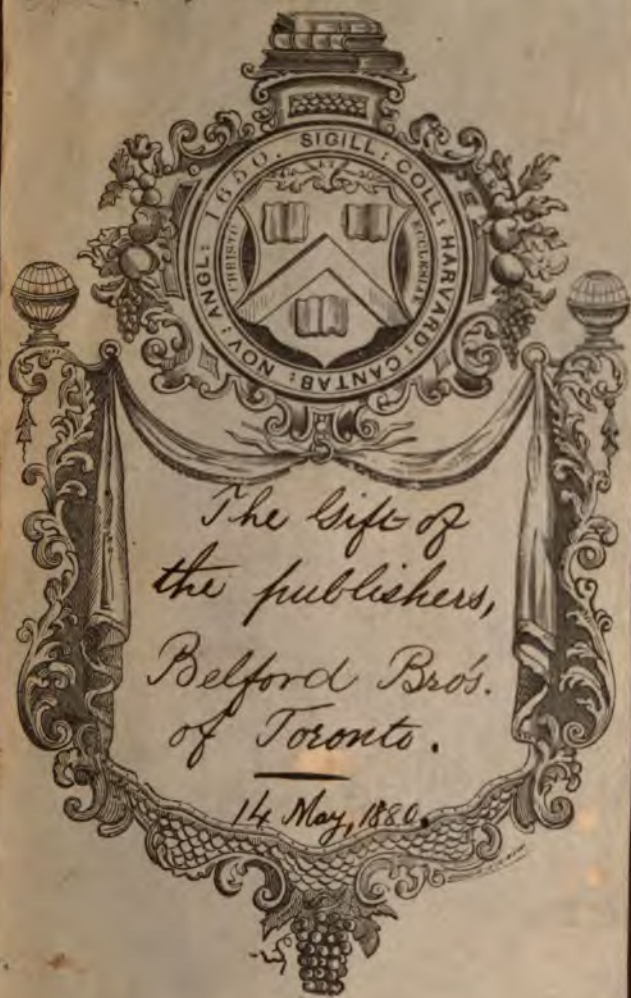 SIGILL: COLL: HARVARD: CANTAB: NOV: ANGL: 1650.
CHRISTO
ECCLESIAE
The Gift of
the publishers,
Belford Bro's.
of Toronto.
14 May, 1880.